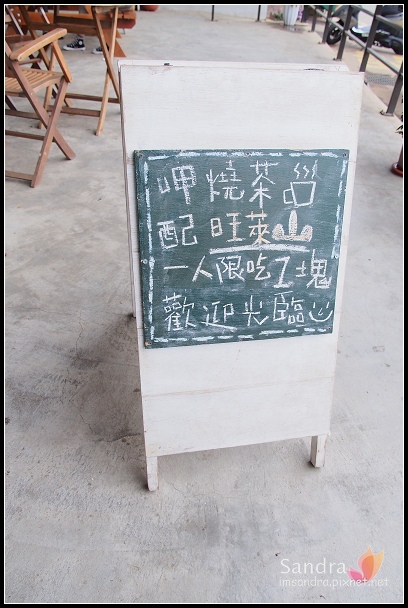 呷燒茶
配旺萊山
一人限吃1塊
歡迎光臨
Sandra
imsandra.pixnet.net